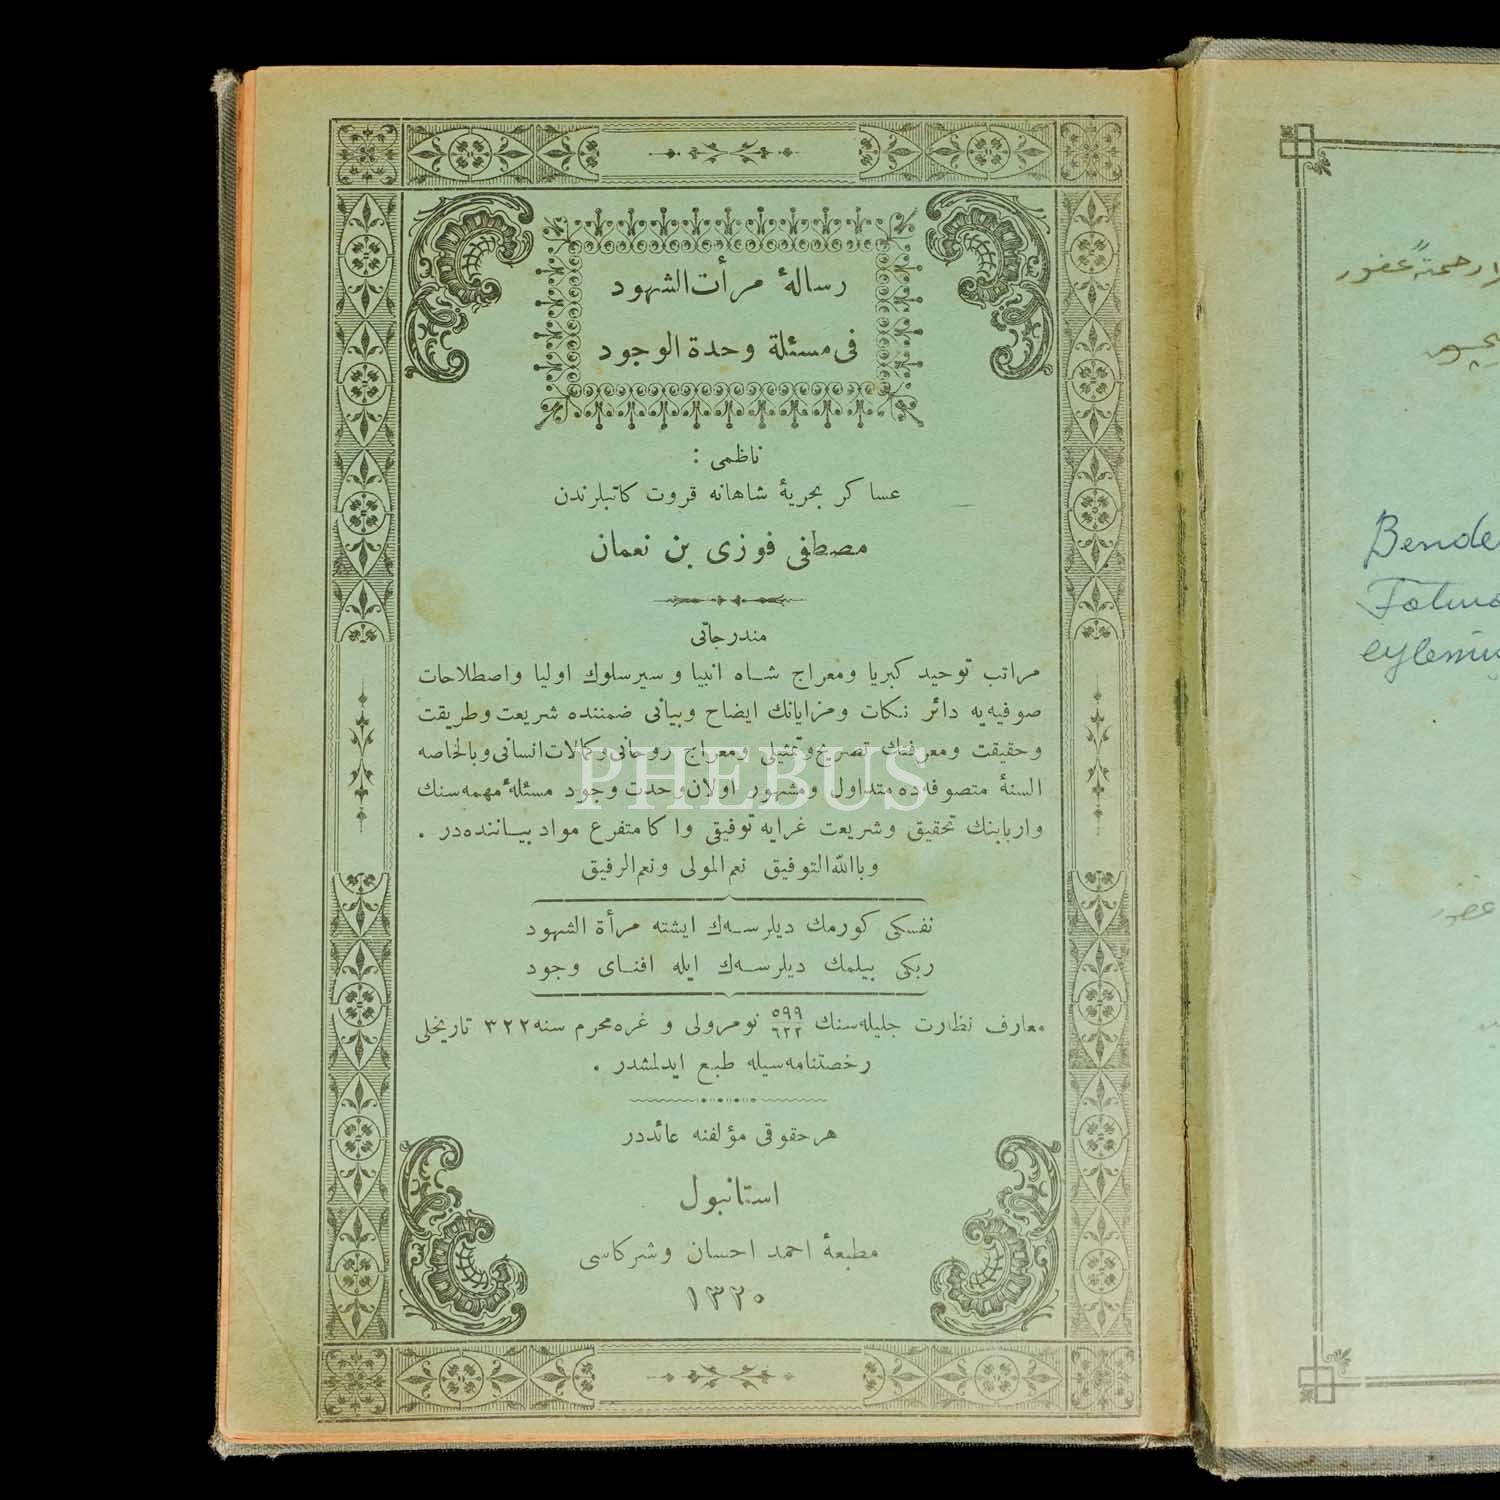 رسالهٔ مرأت الشهود
فی مسئلة وحدة الوجود
ناظمی :
عساكر بحریهٔ شاهانه قروت كاتبلرندن
مصطفی فوزی بن نعمان
مندرجاتی
مراتب توحید كبریا ومعراج شاه انبیا و سیرسلوك اولیا واصطلاحات
صوفیه‌یه دائر نكات ومزایانك ایضاح وبیانی ضمننده شریعت وطریقت
وحقیقت ومعرفتك تصریح وتمثیلی ومعراج روحانی وكمالات انسانی وبالخاصه
السنهٔ متصوفه‌ده متداول ومشهور اولان وحدت وجود مسئلهٔ مهمه‌سنك
واربابنك تحقیق وشریعت غرایه توفیقی واكا متفرع مواد بیاننده‌در .
وبالله التوفیق نعم المولی ونعم الرفیق
نفسكی كورمك دیلرسه‌ك ایشته مرأة الشهود
ربكی بیلمك دیلرسه‌ك ایله افنای وجود
معارف نظارت جلیله‌سنك ٥٩٩/٦٢٢ نومرولی و غره محرم سنه ٣٢٢ تاریخلی
رخصتنامه‌سیله طبع ایدلمشدر .
هر حقوقی مؤلفنه عائددر
استانبول
مطبعهٔ احمد احسان وشركاسی
١٣٢٠
PHEBUS